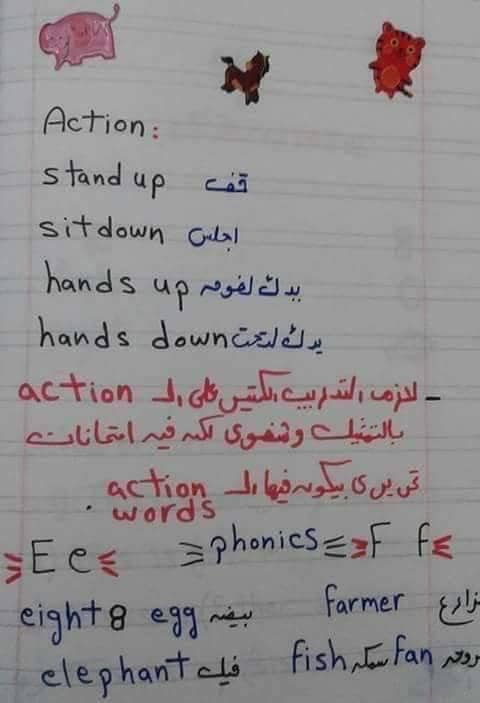 Action:
stand up قف
sit down اجلس
hands up يدك لفوق
hands down يدك لتحت
- لازم التدريب الكتير على الـ action
بالتمثيل وشفوي لكن فيه امتحانات
تحريري بيكون فيها الـ action
words
E e phonics F f
eight 8 egg بيضه farmer مزارع
elephant فيل fish سمكه fan مروحه